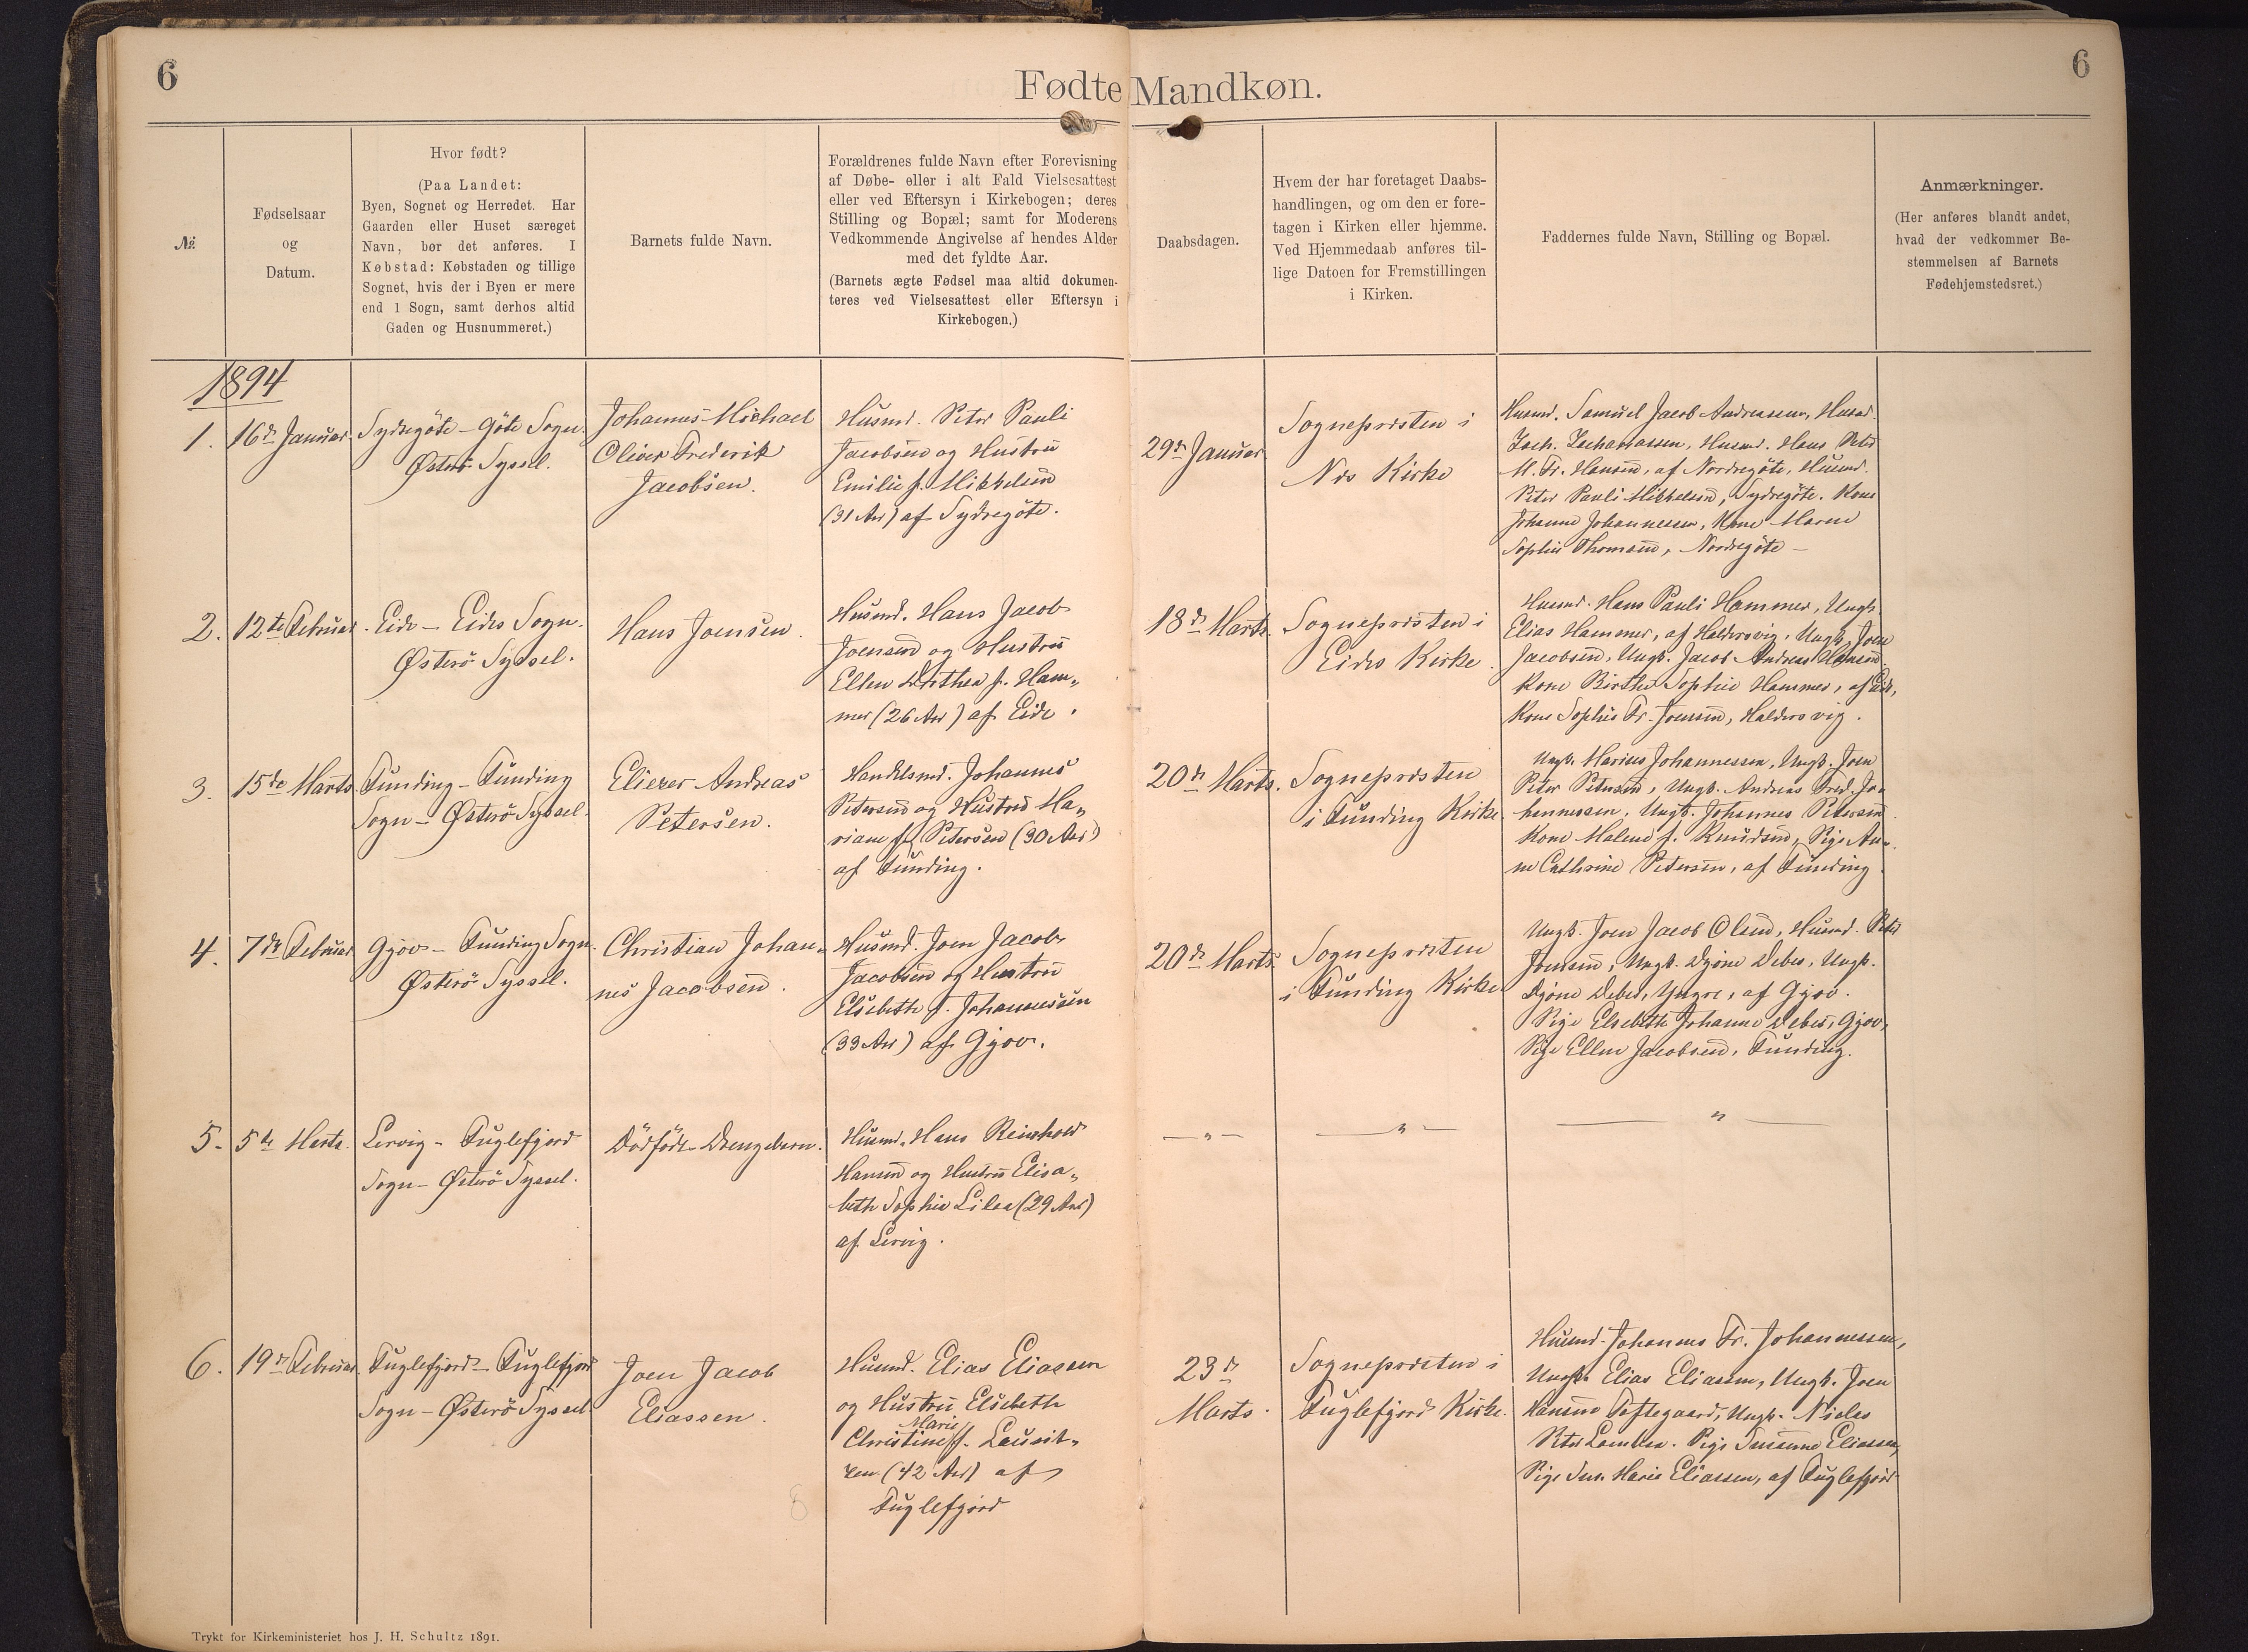 6
Fødte Mandkøn.
6
№
Fødselsaar
og
Datum.
Hvor født?
(Paa Landet:
Byen, Sognet og Herredet. Har
Gaarden eller Huset særeget
Navn, bør det anføres. I
Købstad: Købstaden og tillige
Sognet, hvis der i Byen er mere
end 1 Sogn, samt derhos altid
Gaden og Husnummeret.)
Barnets fulde Navn.
Forældrenes fulde Navn efter Forevisning
af Døbe- eller i alt Fald Vielsesattest
eller ved Eftersyn i Kirkebogen; deres
Stilling og Bopæl; samt for Moderens
Vedkommende Angivelse af hendes Alder
med det fyldte Aar.
(Barnets ægte Fødsel maa altid dokumen-
teres ved Vielsesattest eller Eftersyn i
Kirkebogen.)
Daabsdagen.
Hvem der har foretaget Daabs-
handlingen, og om den er fore-
tagen i Kirken eller hjemme.
Ved Hjemmedaab anføres til-
lige Datoen for Fremstillingen
i Kirken.
Faddernes fulde Navn, Stilling og Bopæl.
Anmærkninger.
(Her anføres blandt andet,
hvad der vedkommer Be-
stemmelsen af Barnets
Fødehjemstedsret.)
1894
1.
16de Januar
Sydregöte - Göte Sogn.
Østerö Syssel.
Johannes Michael
Oliver Frederik
Jacobsen.
Husmd. Peter Pauli
Jacobsen og Hustru
Emilie f. Mikkelsen
(31 Aar) af Sydregöte.
29de Januar
Sognepræsten i
Næs Kirke
Husmd. Samuel Jacob Andreassen, Husmd.
Zach. Zachariassen, Husmd. Hans Peter
M. Fr. Hansen, af Nordregöte, Husmd.
Peter Pauli Mikkelsen, Sydregöte. Kone
Johanne Johannesen, Kone Maren
Sophie Thomsen, Nordregöte -
2.
12te Februar
Eide - Eides Sogn.
Østerö Syssel.
Hans Joensen.
Husmd. Hans Jacob
Joensen og Hustru
Ellen Dorthea f. Ham„
mer (26 Aar) af Eide.
18de Marts.
Sognepræsten i
Eides Kirke.
Husmd. Hans Pauli Hammer, Ungk.
Elias Hammer, af Haldersvig, Ungk. Joen
Jacobsen, Ungk. Jacob Andreas Hansen
Kone Birthe Sophie Hammer, af Eide,
Kone Sophie Fr. Joensen, Haldersvig.
3.
15de Marts
Funding - Funding
Sogn - Østerö Syssel.
Eliezer Andreas
Petersen.
Handelsmd. Johannes
Petersen og Hustru Ma„
riane f. Petersen (30 Aar)
af Funding.
20de Marts.
Sognepræsten
i Funding Kirke
Ungk. Marius Johannessen, Ungk. Joen
Peter Petersen, Ungk. Andreas Fred. Jo„
hannessen, Ungk. Johannes Petersen
Kone Malene f. Knudsen, Pige An„
ne Cathrine Petersen, af Funding
4.
7de Februar
Gjov - Funding Sogn.
Østerö Syssel.
Christian Johan„
nes Jacobsen.
Husmd. Joen Jacob
Jacobsen og Hustru
Elsebeth f. Johannessen
(33 Aar) af Gjov.
20de Marts.
Sognepræsten
i Funding Kirke
Ungk. Joen Jacob Olsen, Husmd. Peter
Joensen, Ungk. Djone Debes, Ungk.
Djone Debes, Yngre, af Gjov.
Pige Elsebeth Johanne Debes, Gjov,
Pige Ellen Jacobsen, Funding.
5.
5te Marts.
Lervig - Fuglefjord
Sogn - Østerö Syssel.
Dödfödt Drengebarn.
Husmd. Hans Reinhold
Hansen og Hustru Elisa„
beth Sophie Lilea (29 Aar)
af Lervig.
- „ -
- „ -
- „ -
6.
19de Februar
Fuglefjord - Fuglefjord
Sogn - Østerö Syssel
Joen Jacob
Eliassen.
Husmd. Elias Eliassen
og Hustru Elsebeth
Marie
Christine f. Laurit„
zen (42 Aar) af
Fuglefjord
23de
Marts.
Sognepræsten i
Fuglefjord Kirke.
Husmd. Johannes Fr. Johannessen,
Ungk. Elias Eliassen, Ungk. Joen
Hansen Toftegaard, Ungk. Niclas
Peter Lamhea. Pige Susanne Eliassen,
Pige Sus. Marie Eliassen, af Fuglefjord
Trykt for Kirkeministeriet hos J. H. Schultz 1891.